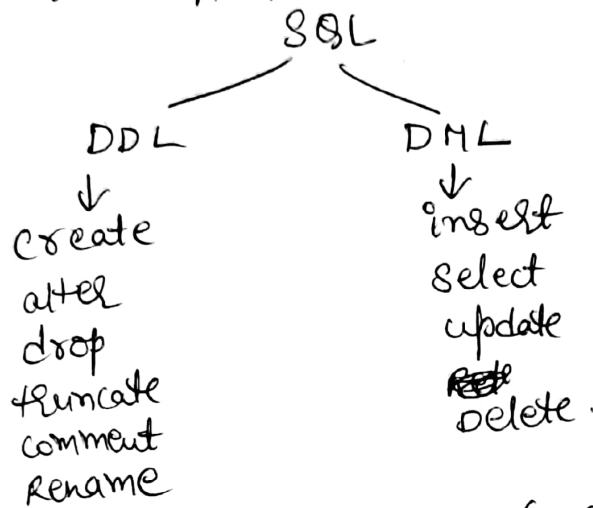 SQL
DDL
create
alter
drop
truncate
comment
Rename
DML
insert
select
update
Delete.